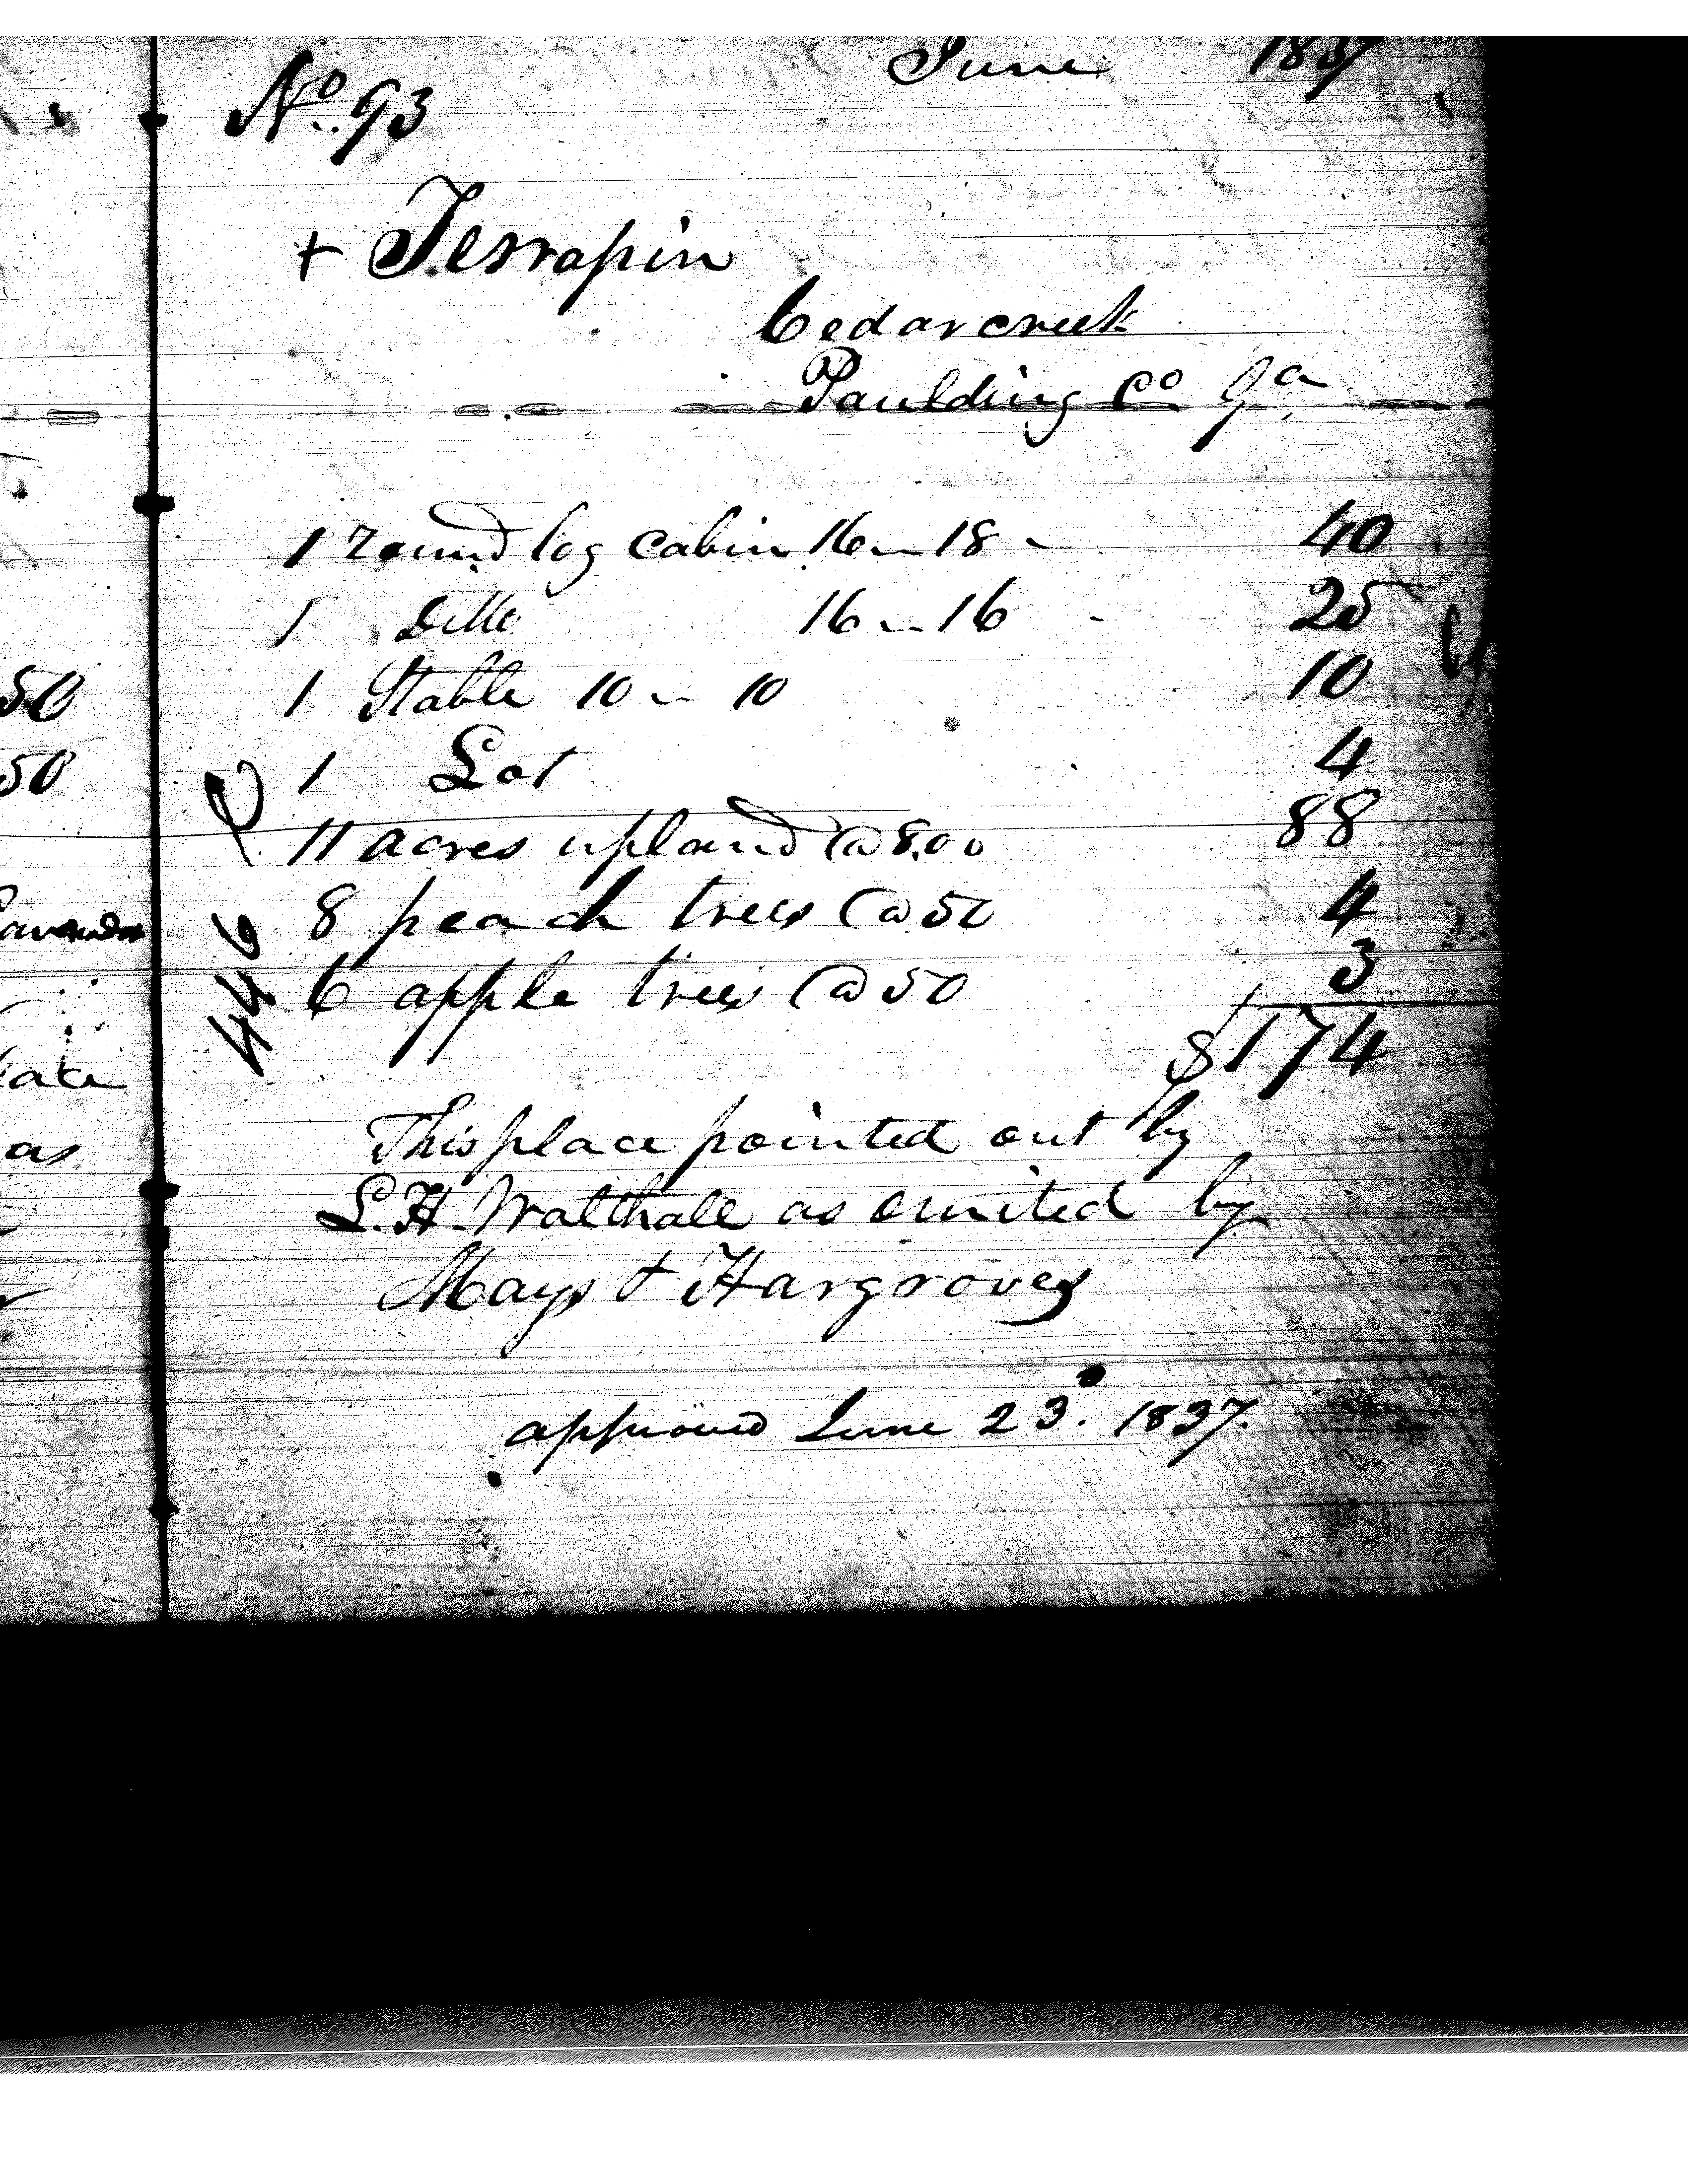 June 1837
No. 93
+ Terrapin
Cedar creek
Paulding Co Ga
1 round log cabin 16 - 18 - 40
1 Ditto 16 - 16 - 25
1 Stable 10 - 10 10
1 Lot 4
11 acres upland @ 8.00 88
8 peach trees @ 50 4
6 apple trees @ 50 3
$174
446
This place pointed out by
S. H. Walthall as omited by
Mays + Hargroves
approved June 23. 1837.
50
50
as